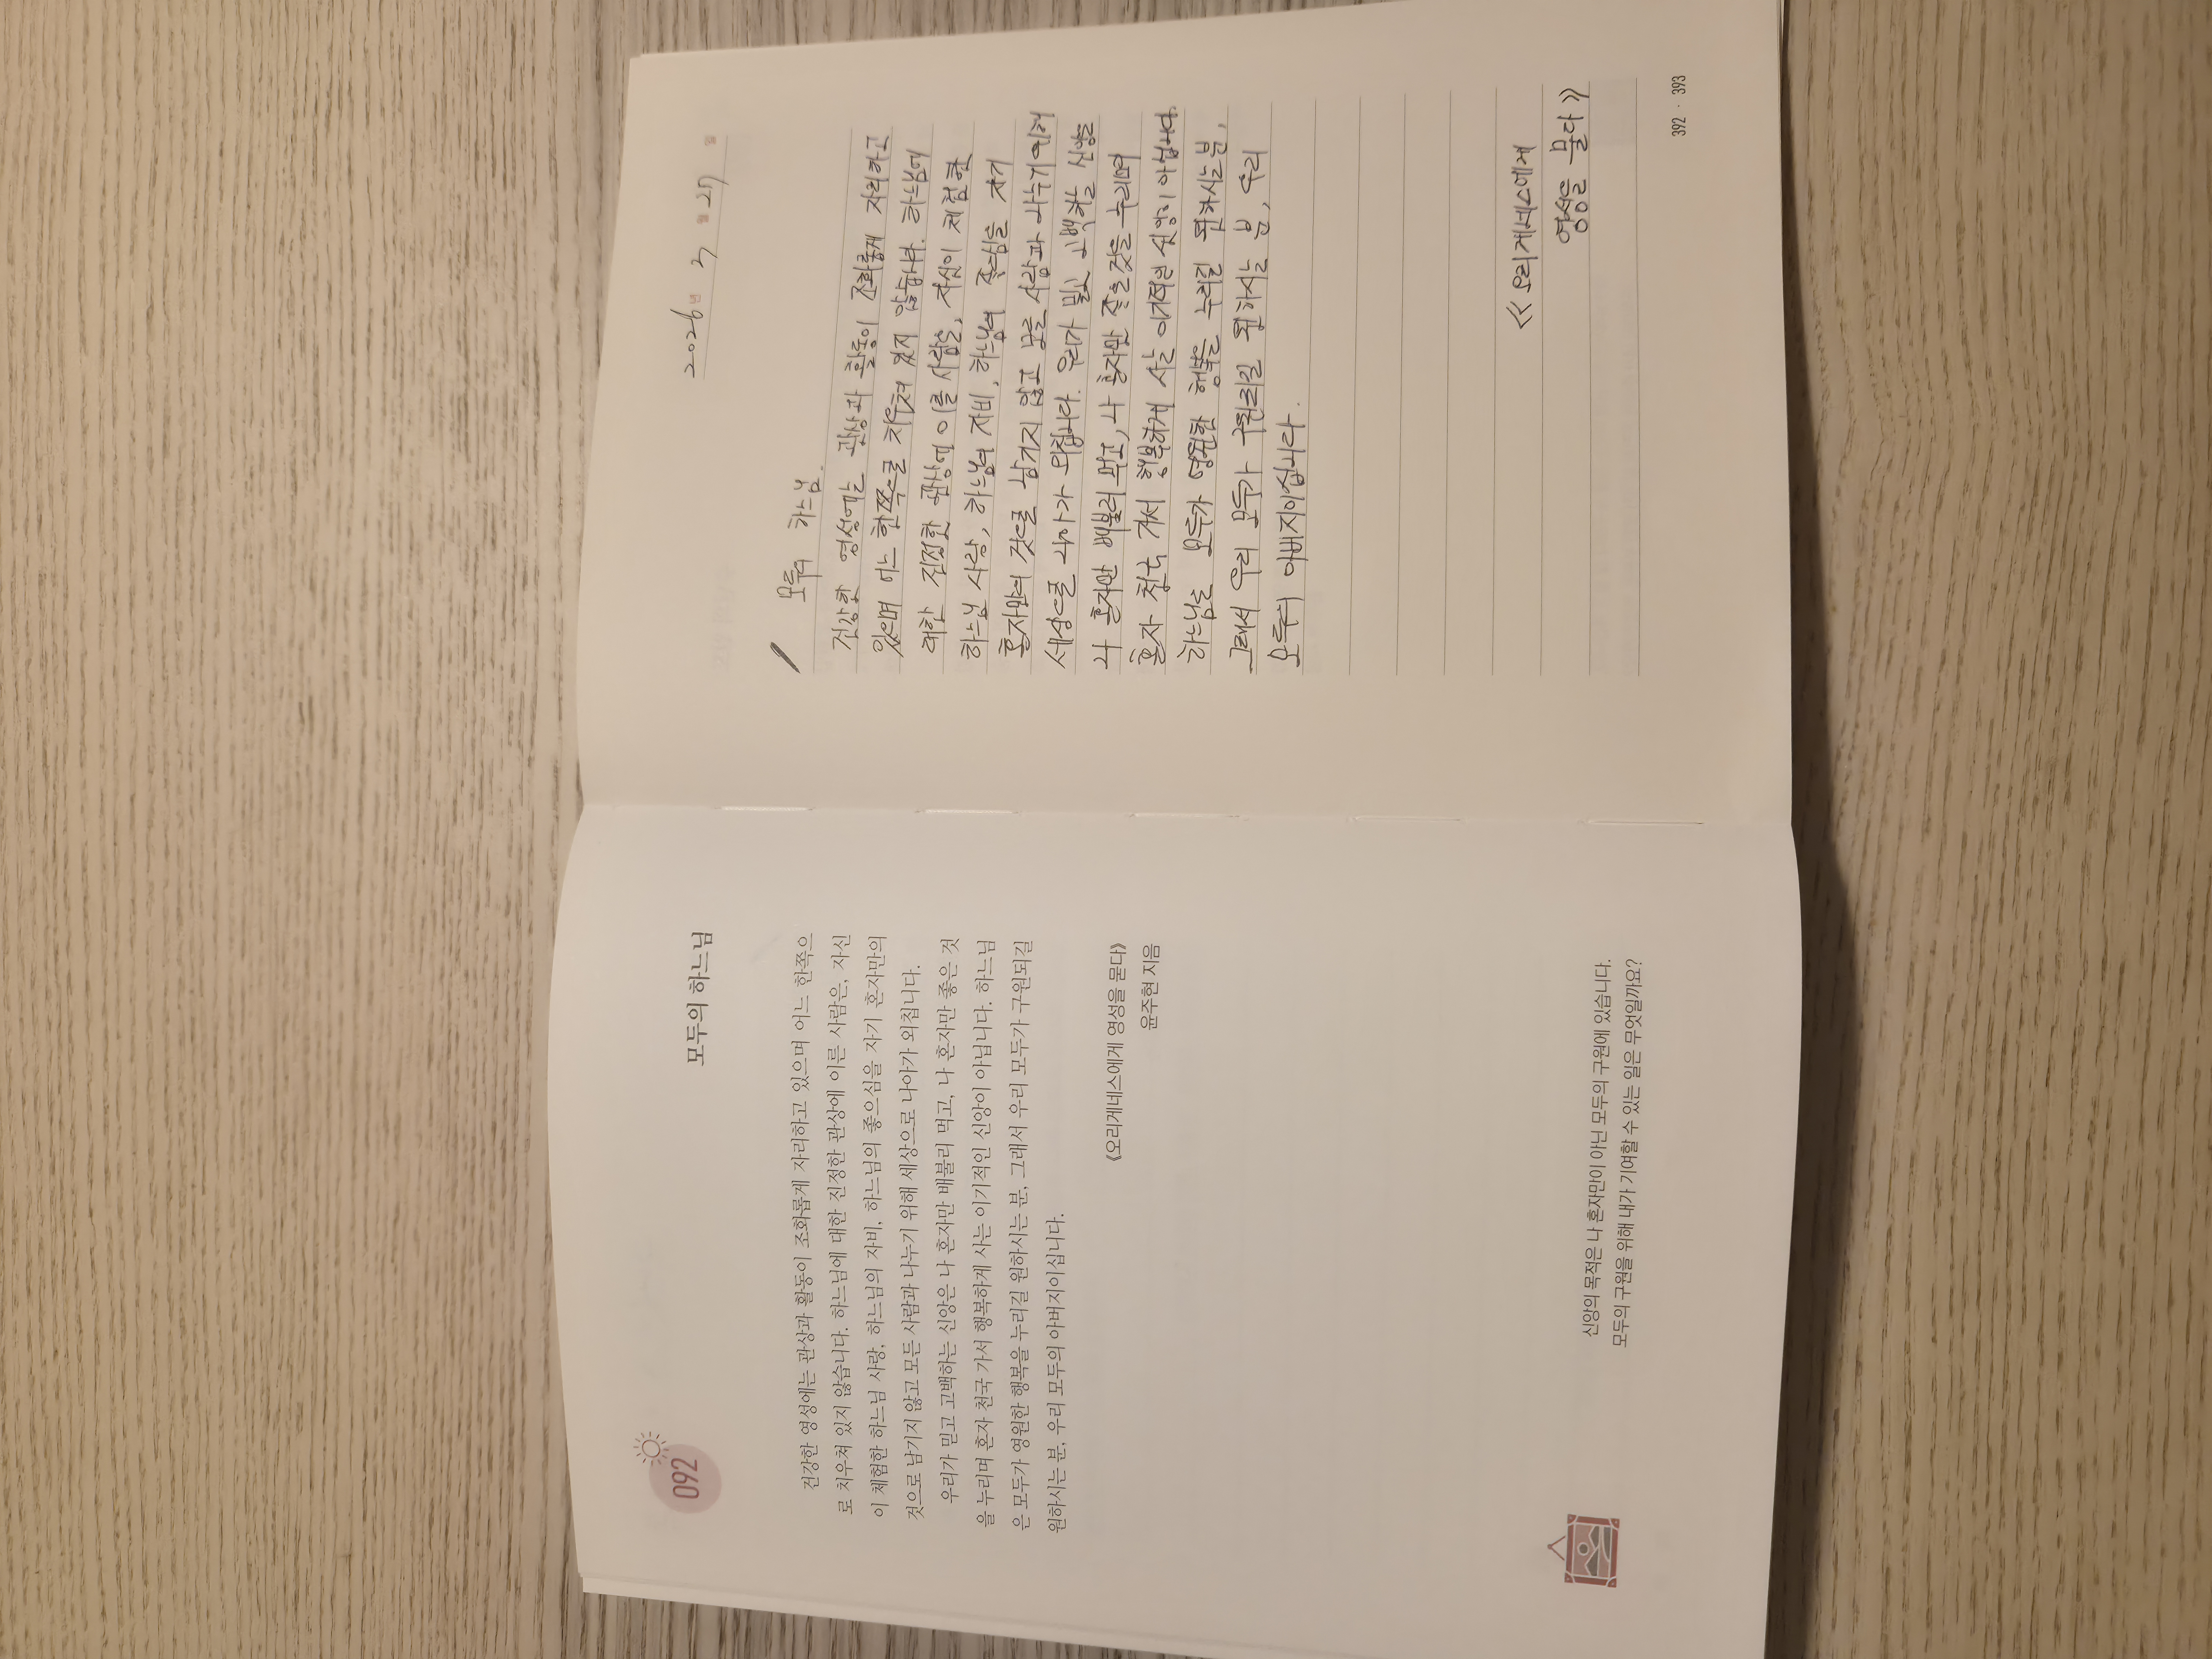 092
모두의 하느님
건강한 영성에는 관상과 활동이 조화롭게 자리하고 있으며 어느 한쪽으
로 치우쳐 있지 않습니다. 하느님에 대한 진정한 관상에 이른 사람은, 자신
이 체험한 하느님 사랑, 하느님의 자비, 하느님의 좋으심을 자기 혼자만의
것으로 남기지 않고 모든 사람과 나누기 위해 세상으로 나아가 외칩니다.
우리가 믿고 고백하는 신앙은 나 혼자만 배불리 먹고, 나 혼자만 좋은 것
을 누리며 혼자 천국 가서 행복하게 사는 이기적인 신앙이 아닙니다. 하느님
은 모두가 영원한 행복을 누리길 원하시는 분, 그래서 우리 모두가 구원되길
원하시는 분, 우리 모두의 아버지이십니다.
《오리게네스에게 영성을 묻다》
윤주현 지음
신앙의 목적은 나 혼자만이 아닌 모두의 구원에 있습니다.
모두의 구원을 위해 내가 기여할 수 있는 일은 무엇일까요?
2026년 2월 27일
모두의 하느님.
건강한 영성에는 관상과 활동이 조화롭게 자리하고
있으며 어느 한쪽으로 치우쳐 있지 않습니다. 하느님에
대한 진정한 관상에 이른 사람은, 자신이 체험한
하느님 사랑, 하느님의 자비, 하느님의 좋으심을 자기
혼자만의 것으로 남기지 않고 모든 사람과 나누기 위해
세상으로 나아가 외칩니다. 우리가 믿고 고백하는 신앙은
나 혼자만 배불리 먹고, 나 혼자만 좋은 것을 누리며
혼자 천국 가서 행복하게 사는 이기적인 신앙이 아닙니다.
하느님은 모두가 영원한 행복을 누리길 원하시는 분,
그래서 우리 모두가 구원되길 원하시는 분, 우리
모두의 아버지이십니다.
《오리게네스에게
영성을 묻다》
392 · 393